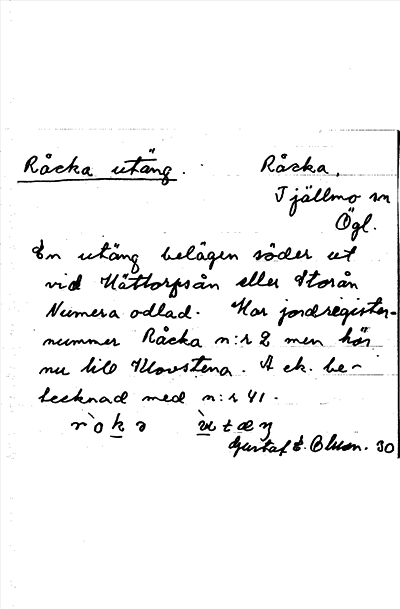 Råcka utäng. Råcka,
Tjällmo sn
Ögl.
En utäng belägen söder ut
vid Hättorpsån eller Storån
Numera odlad. Har jordregister-
nummer Råcka n:r 2 men hör
nu till Klovstena. A ek. be-
tecknad med n:r 41.
r`oka `utæŋ
Gustaf E. Blum. 30